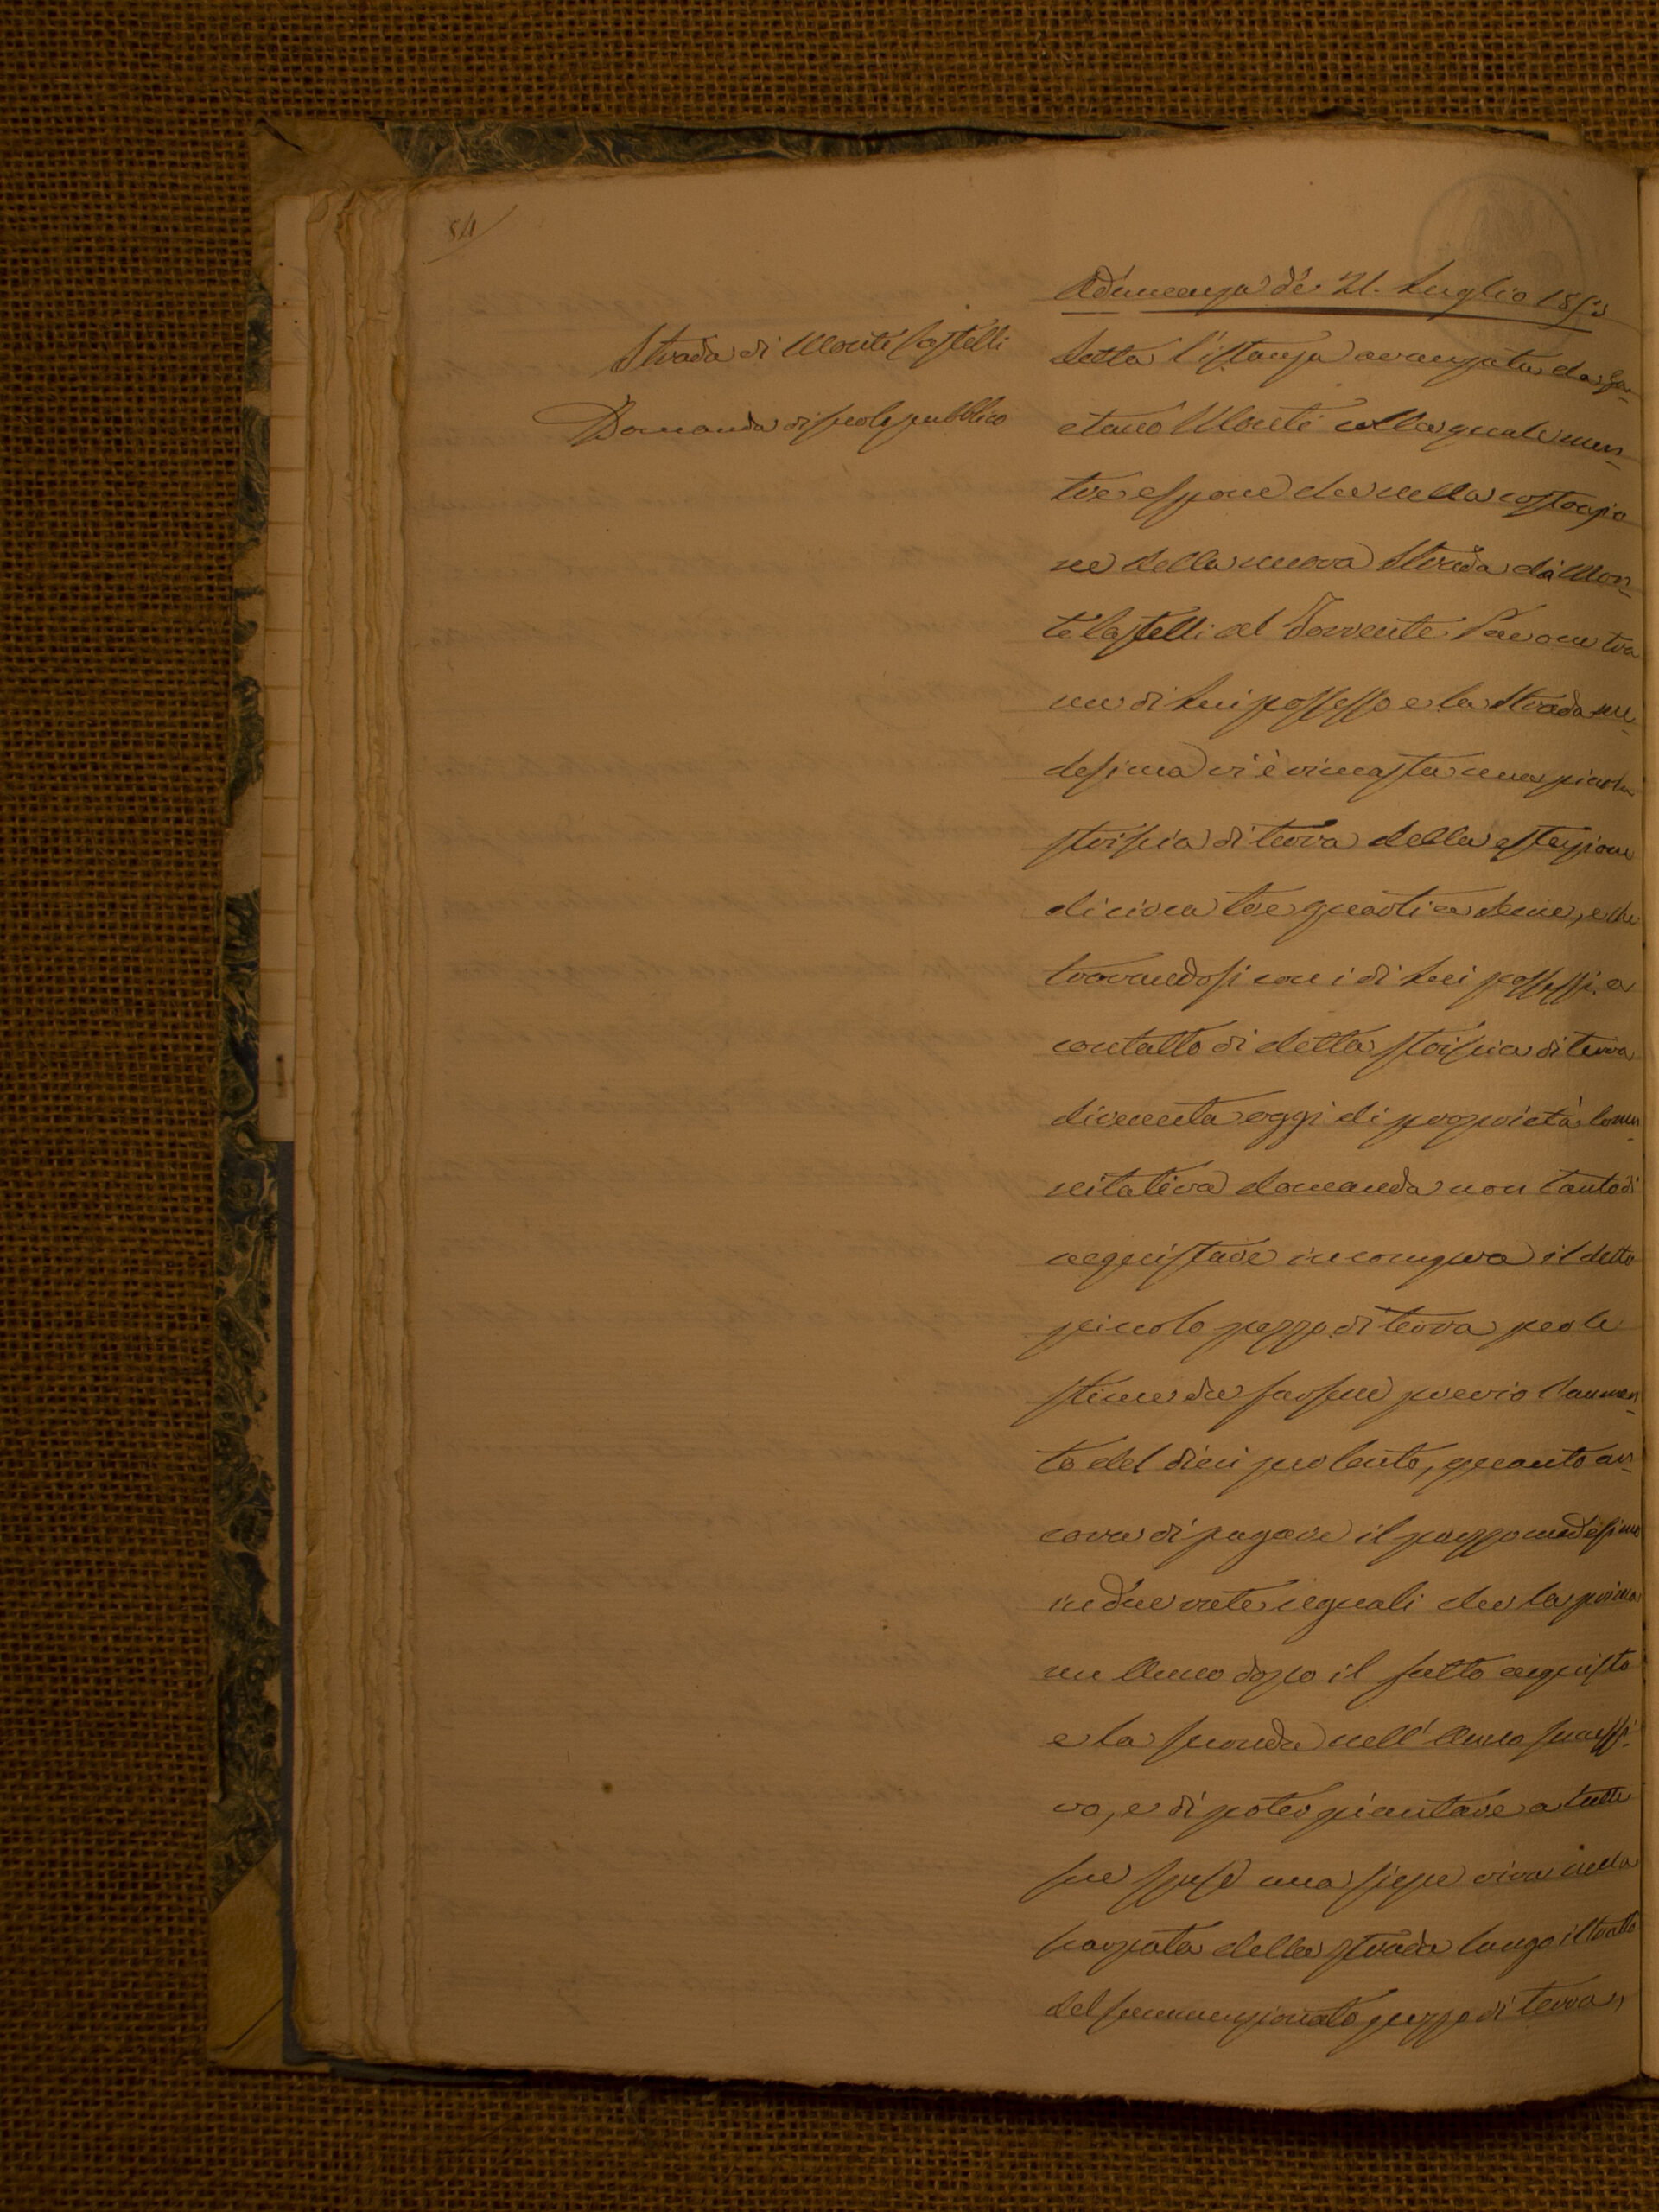 54
Adunanza de' 21. Luglio 185
Strada di Monte Castelli
Domanda di suolo pubblico
Letta l'istanza avanzata da Ga-
etano Monti colla quale men-
tre espone che nella costruzio
ne della nuova Strada da Mon-
te Castelli al Torrente Pavone tra
un di Lui possesso e la Strada me-
desima vi è rimasta una piccola
striscia di terra della estensione
di circa tre quadri e dene, e che
trovandosi con i di Lui possessi a
contatto di detta striscia di terra
diventa oggi di proprietà Comu-
nitativa domanda non tanto di
acquistare in compra il detto
piccolo pezzo di terra per le
stime da farsene previo l'aumen-
to del dieci per Cento, quanto an-
cora di pagare il prezzo medesimo
in due rate eguali che la prima
un Anno dopo il fatto acquisto
e la seconda nell'Anno successi-
vo, e di poter piantare a tutte
sue spese una siepe viva nella
scarpata della strada lungo il tratto
del summenzionato pezzo di terra,